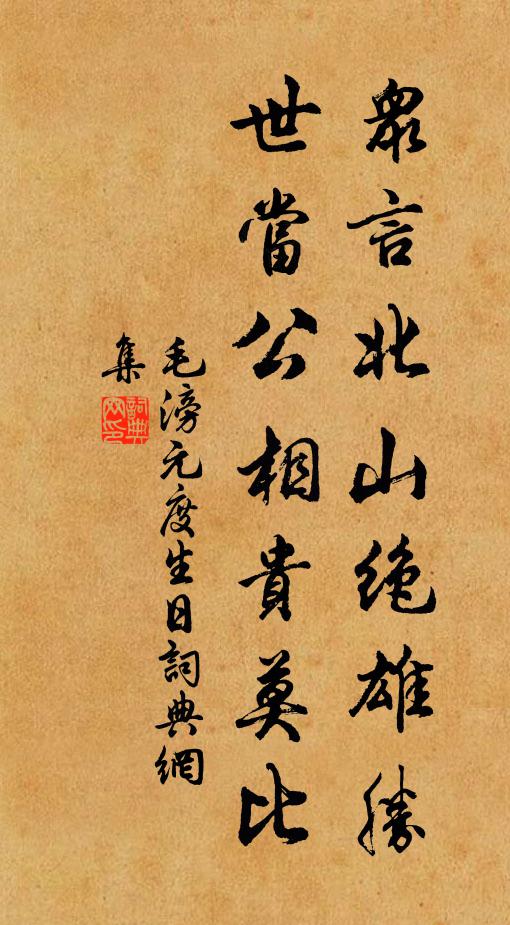 眾言北山絶雄勝
世當公相貴莫比
毛滂元度生日詞典網
集
詞典網印